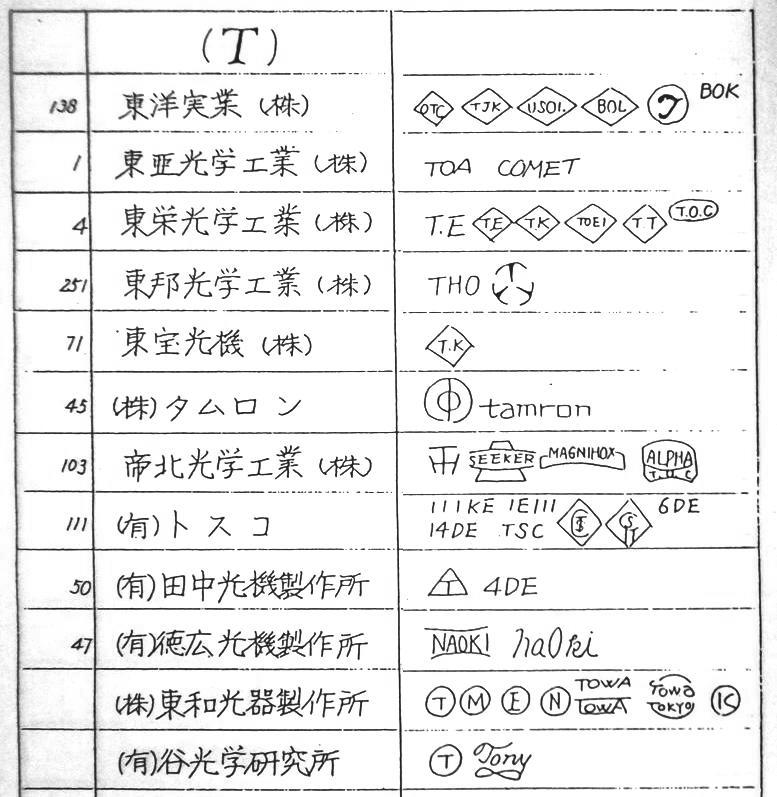 (T)
138 東洋実業(株) OTC TJK USOI. BOL T BOK
1 東亜光学工業(株) TOA COMET
4 東栄光学工業(株) T.E T.E T.K TOEI T.T T.O.C
251 東邦光学工業(株) THO
71 東宝光機(株) T.K
45 (株)タムロン tamron
103 帝北光学工業(株) TH SEEKER MAGNIHOX ALPHA T.O.C
111 (有)トスコ 111KE 1E111 6DE
14DE TSC
50 (有)田中光機製作所 4DE
47 (有)徳広光機製作所 NAOKI naOki
(株)東和光器製作所 T M E N TOWA TOWA Towa TOKYO K
(有)谷光学研究所 T Tony